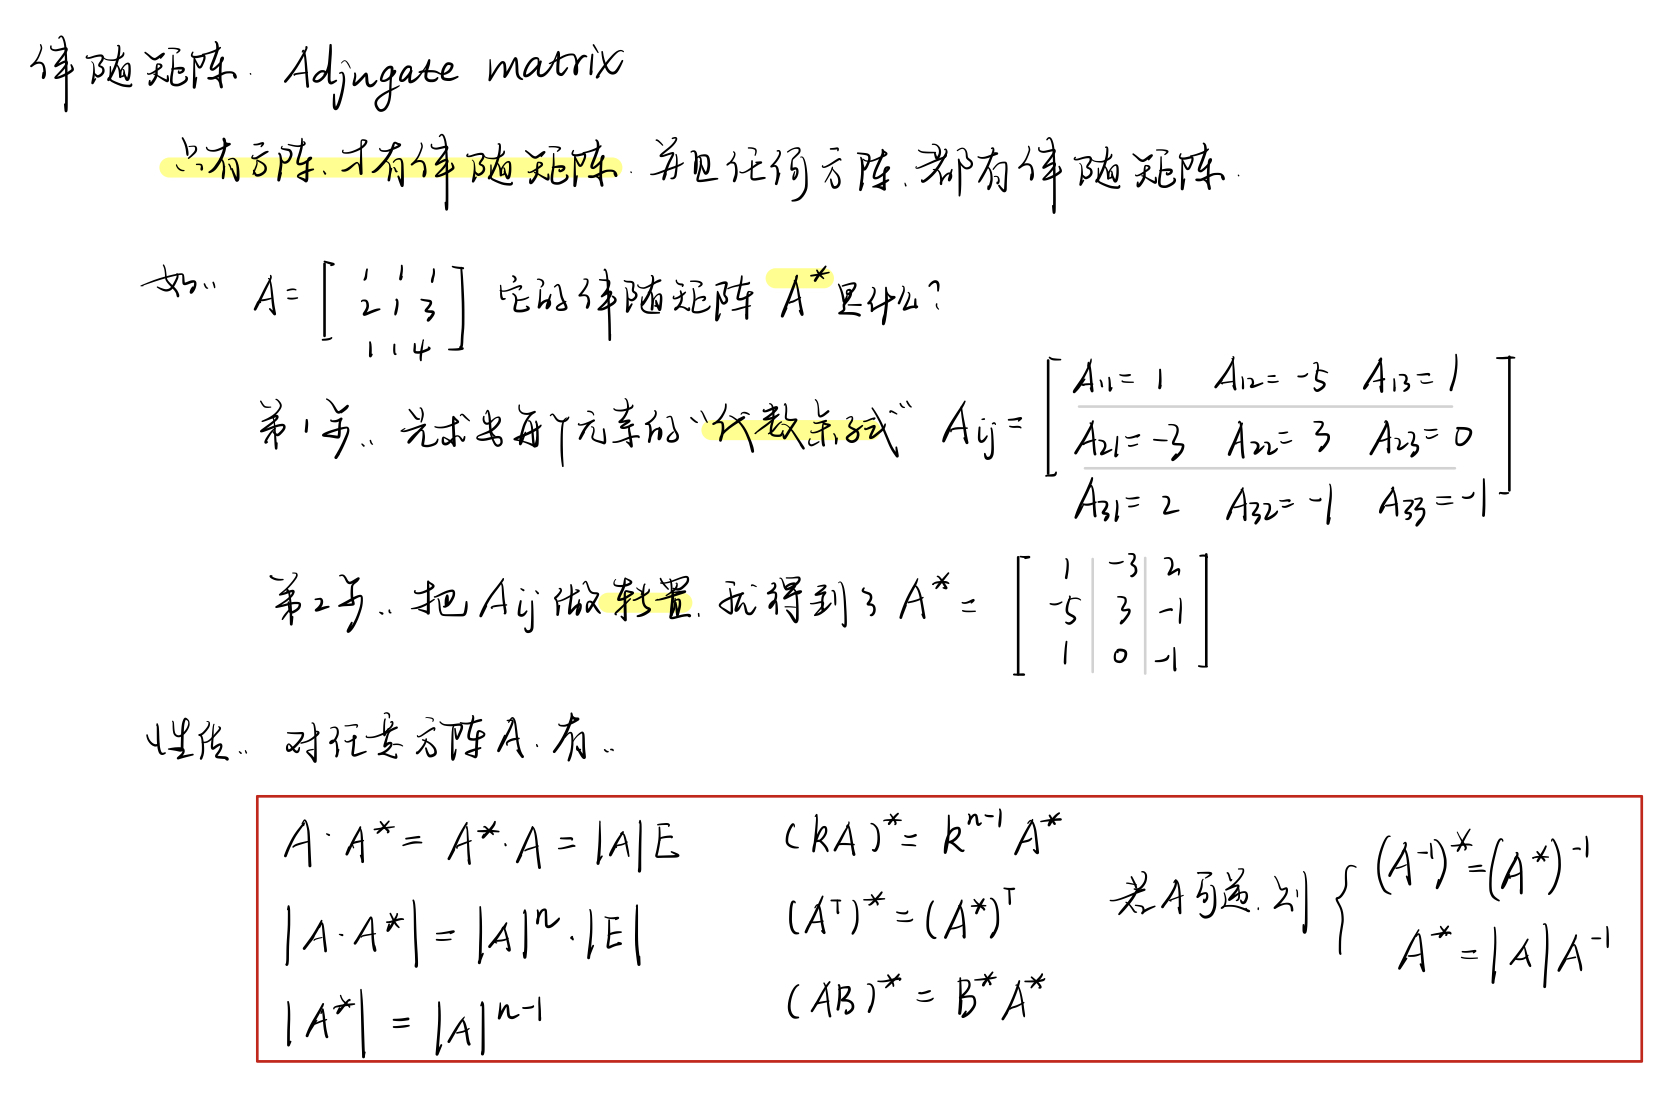 伴随矩阵. Adjugate matrix
只有方阵,才有伴随矩阵. 并且任何方阵,都有伴随矩阵.
如: A = [ 1 1 1 ; 2 1 3 ; 1 1 4 ] 它的伴随矩阵 A* 是什么?
第1步: 先求出每个元素的“代数余子式” Aij = [ A11=1 A12=-5 A13=1 ; A21=-3 A22=3 A23=0 ; A31=2 A32=-1 A33=-1 ]
第2步: 把 Aij 做转置, 就得到了 A* = [ 1 -3 2 ; -5 3 -1 ; 1 0 -1 ]
性质: 对任意方阵A, 有:
A·A* = A*·A = |A|E
|A·A*| = |A|^n·|E|
|A*| = |A|^(n-1)
(kA)* = k^(n-1) A*
(A^T)* = (A*)^T
(AB)* = B*A*
若A可逆, 则 { (A^-1)* = (A*)^-1
A* = |A|A^-1